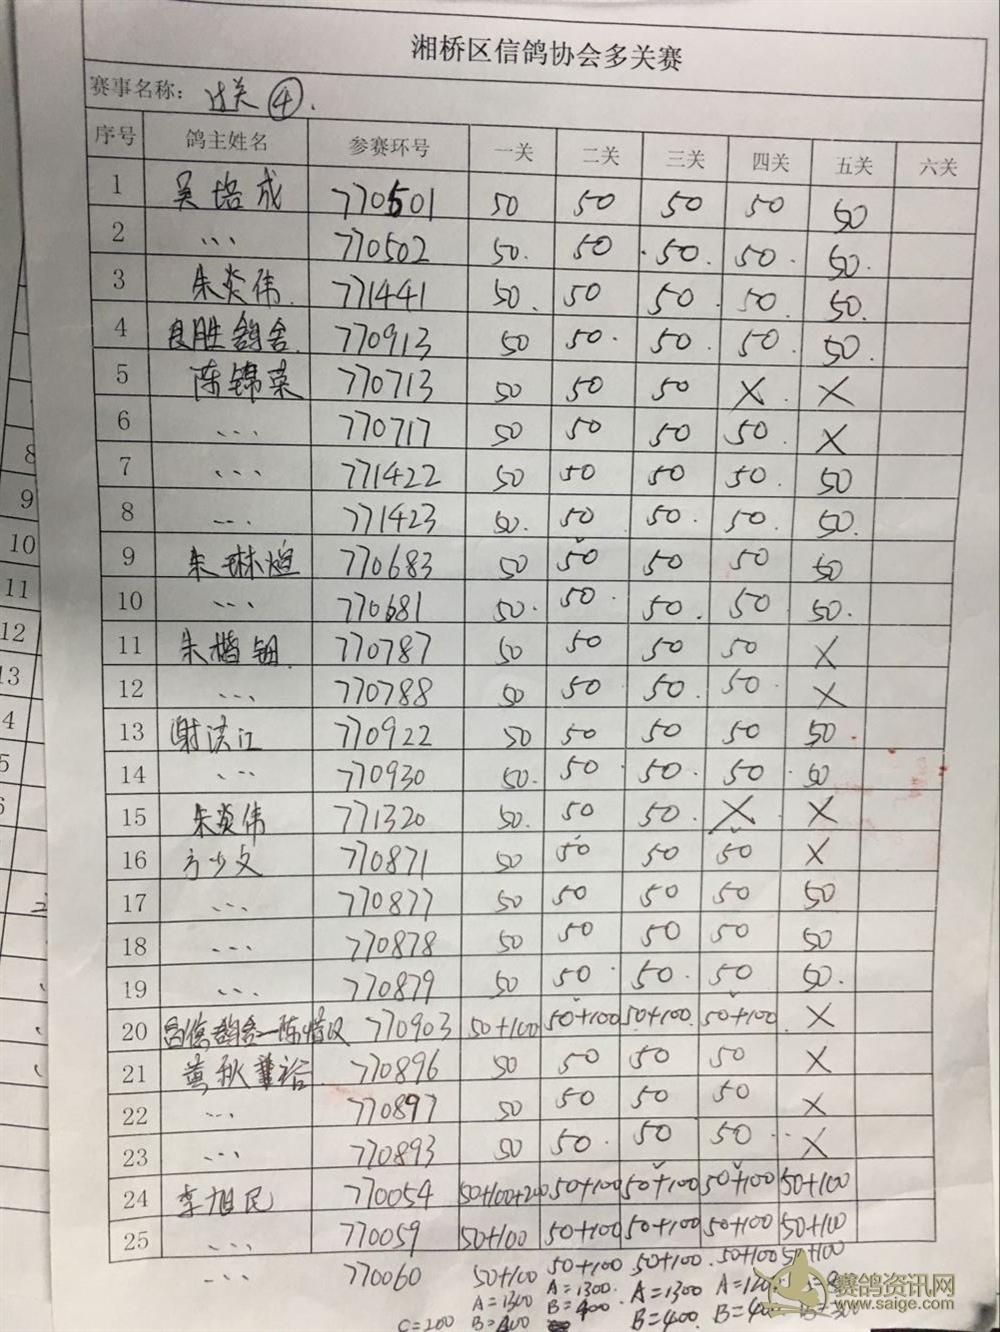 湘桥区信鸽协会多关赛
赛事名称: 过关 ④.
序号 鸽主姓名 参赛环号 一关 二关 三关 四关 五关 六关
1 吴培成 770501 50 50 50 50 50
2 ... 770502 50. 50 .50. 50. 50.
3 朱炎伟. 771441 50. 50 50. 50. 50.
4 良胜鸽舍. 770913 50 50. 50. 50. 50.
5 陈锦荣 770713 50 50 50 X. X
6 ... 770717 50 50 50 50. X
7 ... 771422 50 50 50 50. 50
8 ... 771423 50. 50 50. 50. 50.
9 朱琳煌 770683 50 50 50 50 50
10 ... 770681 50. 50. 50. 50 50.
11 朱楷钿. 770787 50 50 50 50 X
12 ... 770788 50 50 50. 50. X
13 谢洪江 770922 50 50 50 50 50.
14 ... 770930 50. 50 50. 50. 50
15 朱炎伟 771320 50. 50 50. X X
16 方少文 770871 50 50 50 50 X
17 ... 770877 50 50 50 50 50
18 ... 770878 50 50 50 50 50
19 ... 770879 50 50. 50. 50 50.
20 鸽舍—陈 770903 50+100 50+100 50+100. 50+100 X
21 黄秋 裕. 770896 50 50 50 50 X
22 ... 770897 50 50 50 50 X
23 ... 770893 50 50. 50 50. X
24 李旭民 770054 50+100+200 50+100 50+100 50+100 50+100
25 ... 770059 50+100 50+100 50+100 50+100 50+100
... 770060 50+100 50+100 50+100. 50+100 50+100
A=1300 A=1300. A=1300 A=
C=200 B=400 B=400. B=400. B=400 B=
8
9
10
11
12
13
赛鸽资讯网
www.saige.com